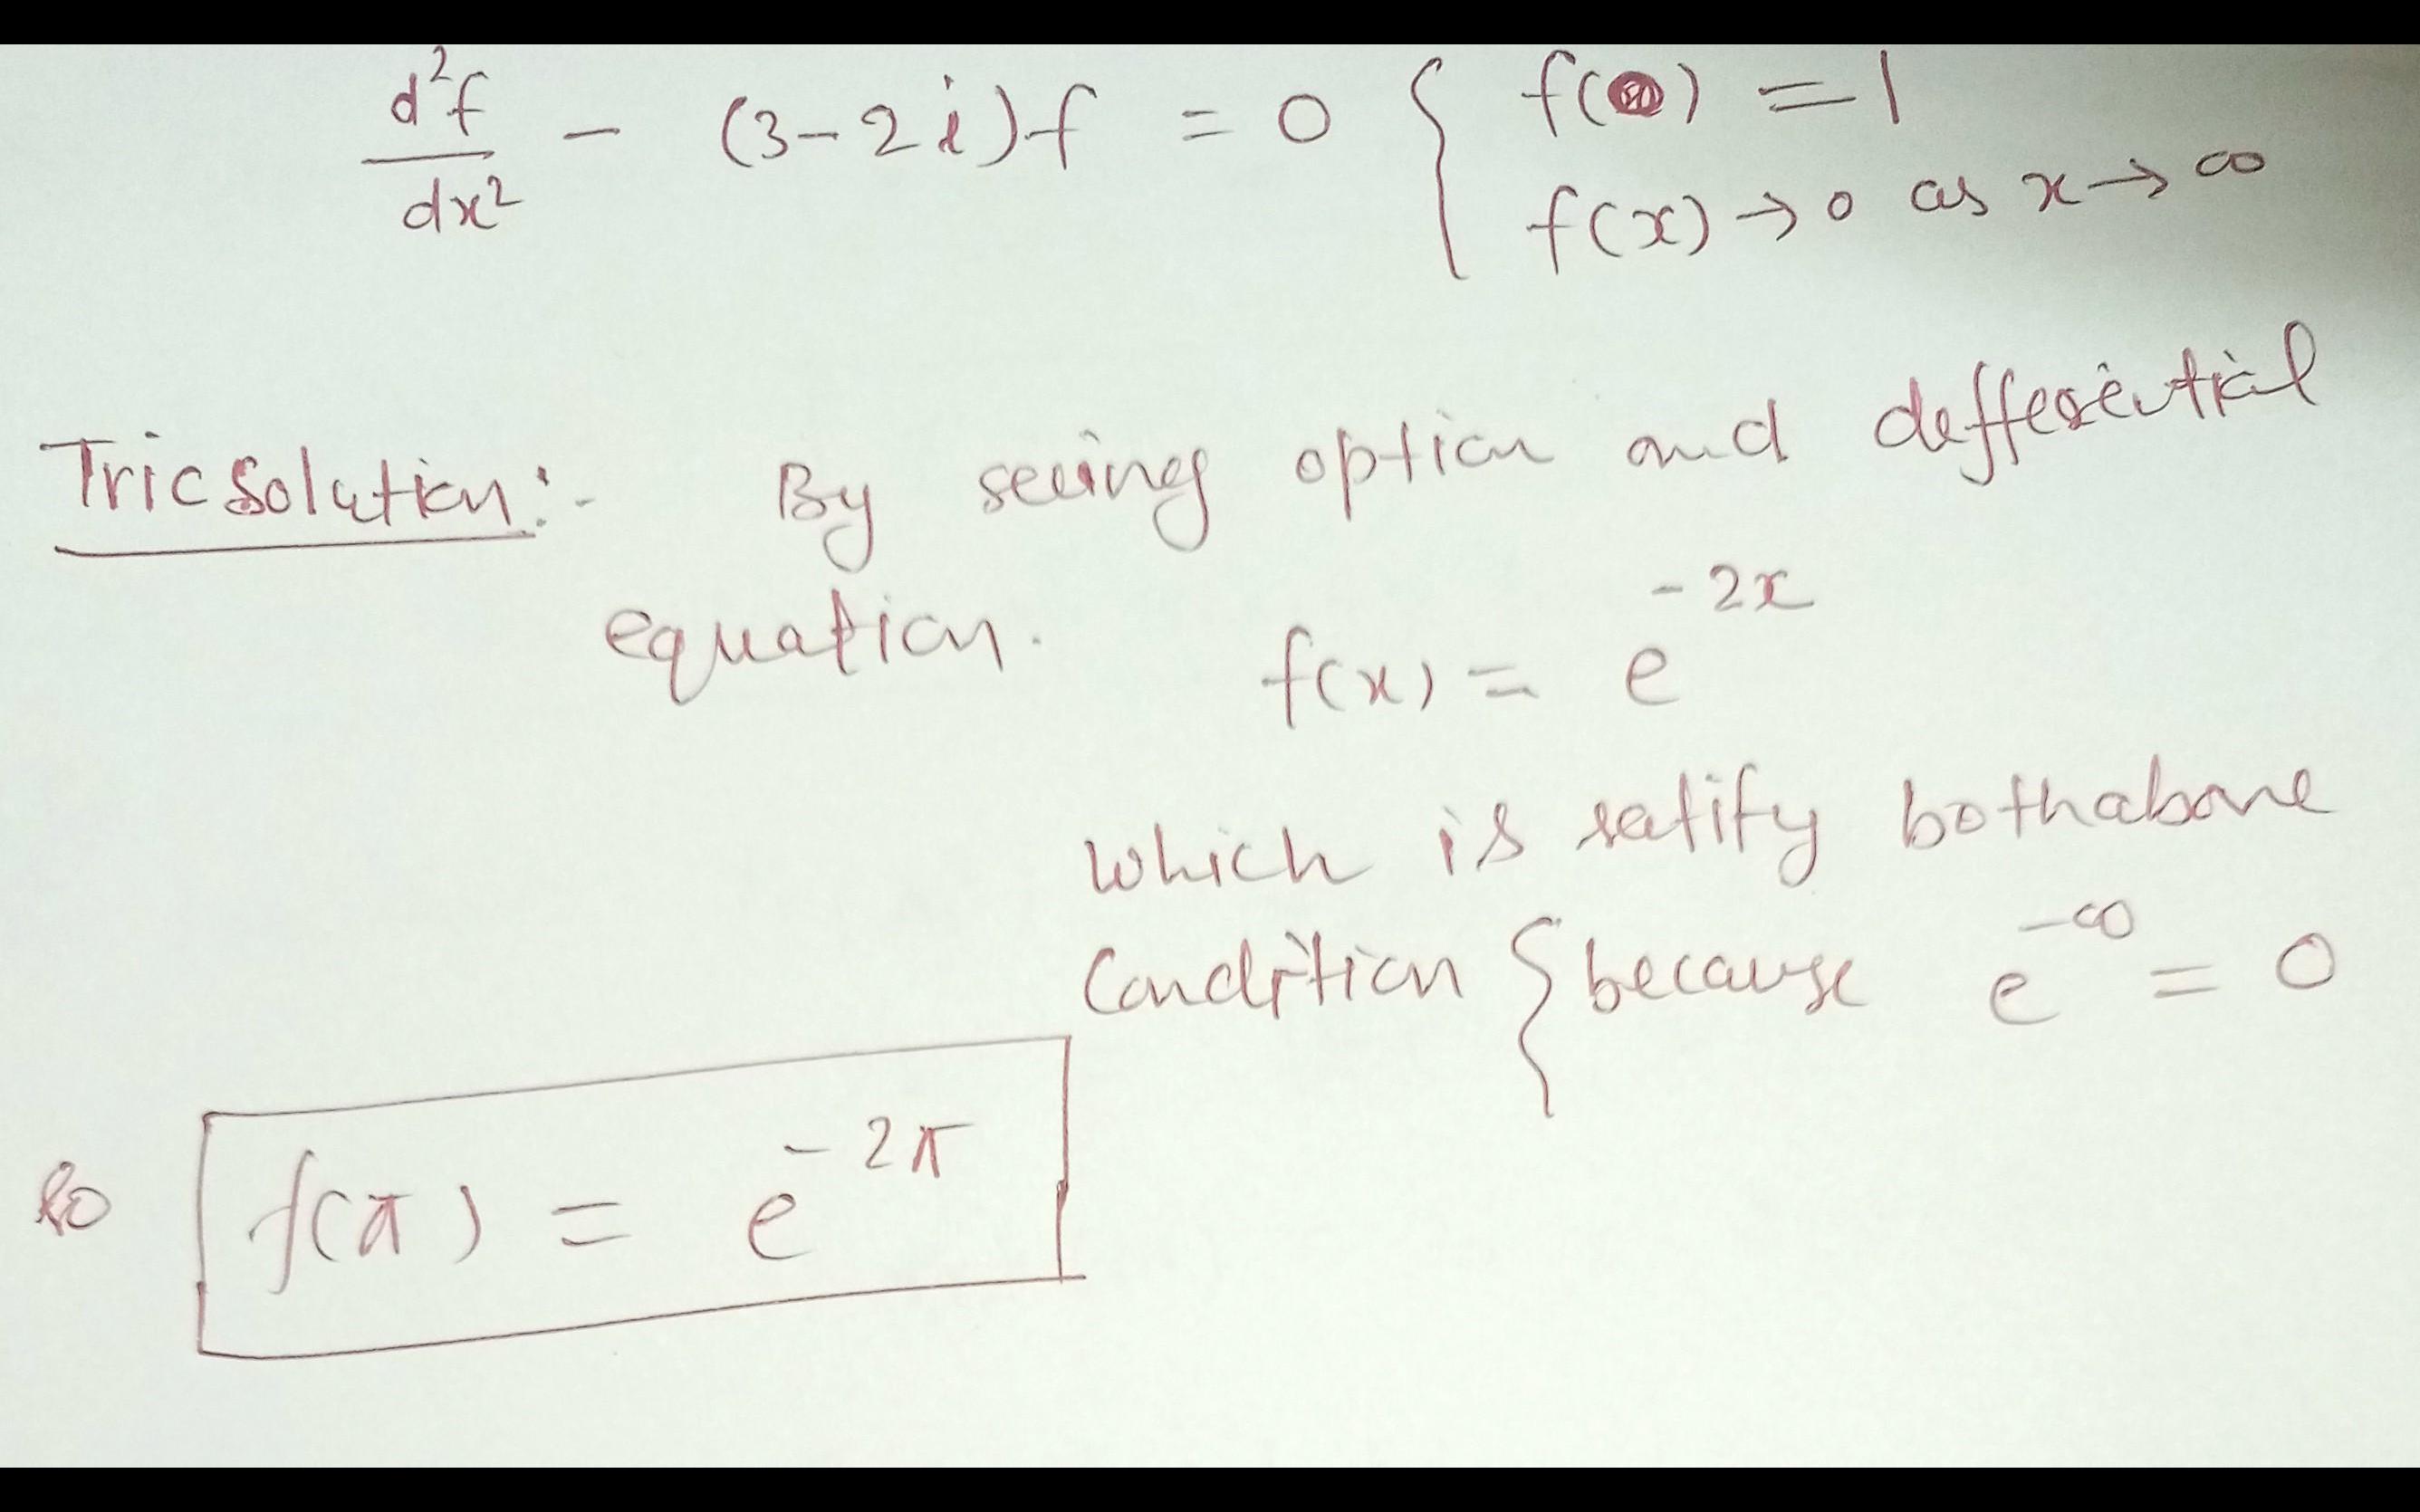 d²f/dx² - (3-2i)f = 0 { f(0) = 1
f(x) → 0 as x → ∞
Tric Solution:- By seeing option and defferential
equation. f(x) = e^{-2x}
which is satify bothabove
Condition { because e^{-∞} = 0
So f(π) = e^{-2π}